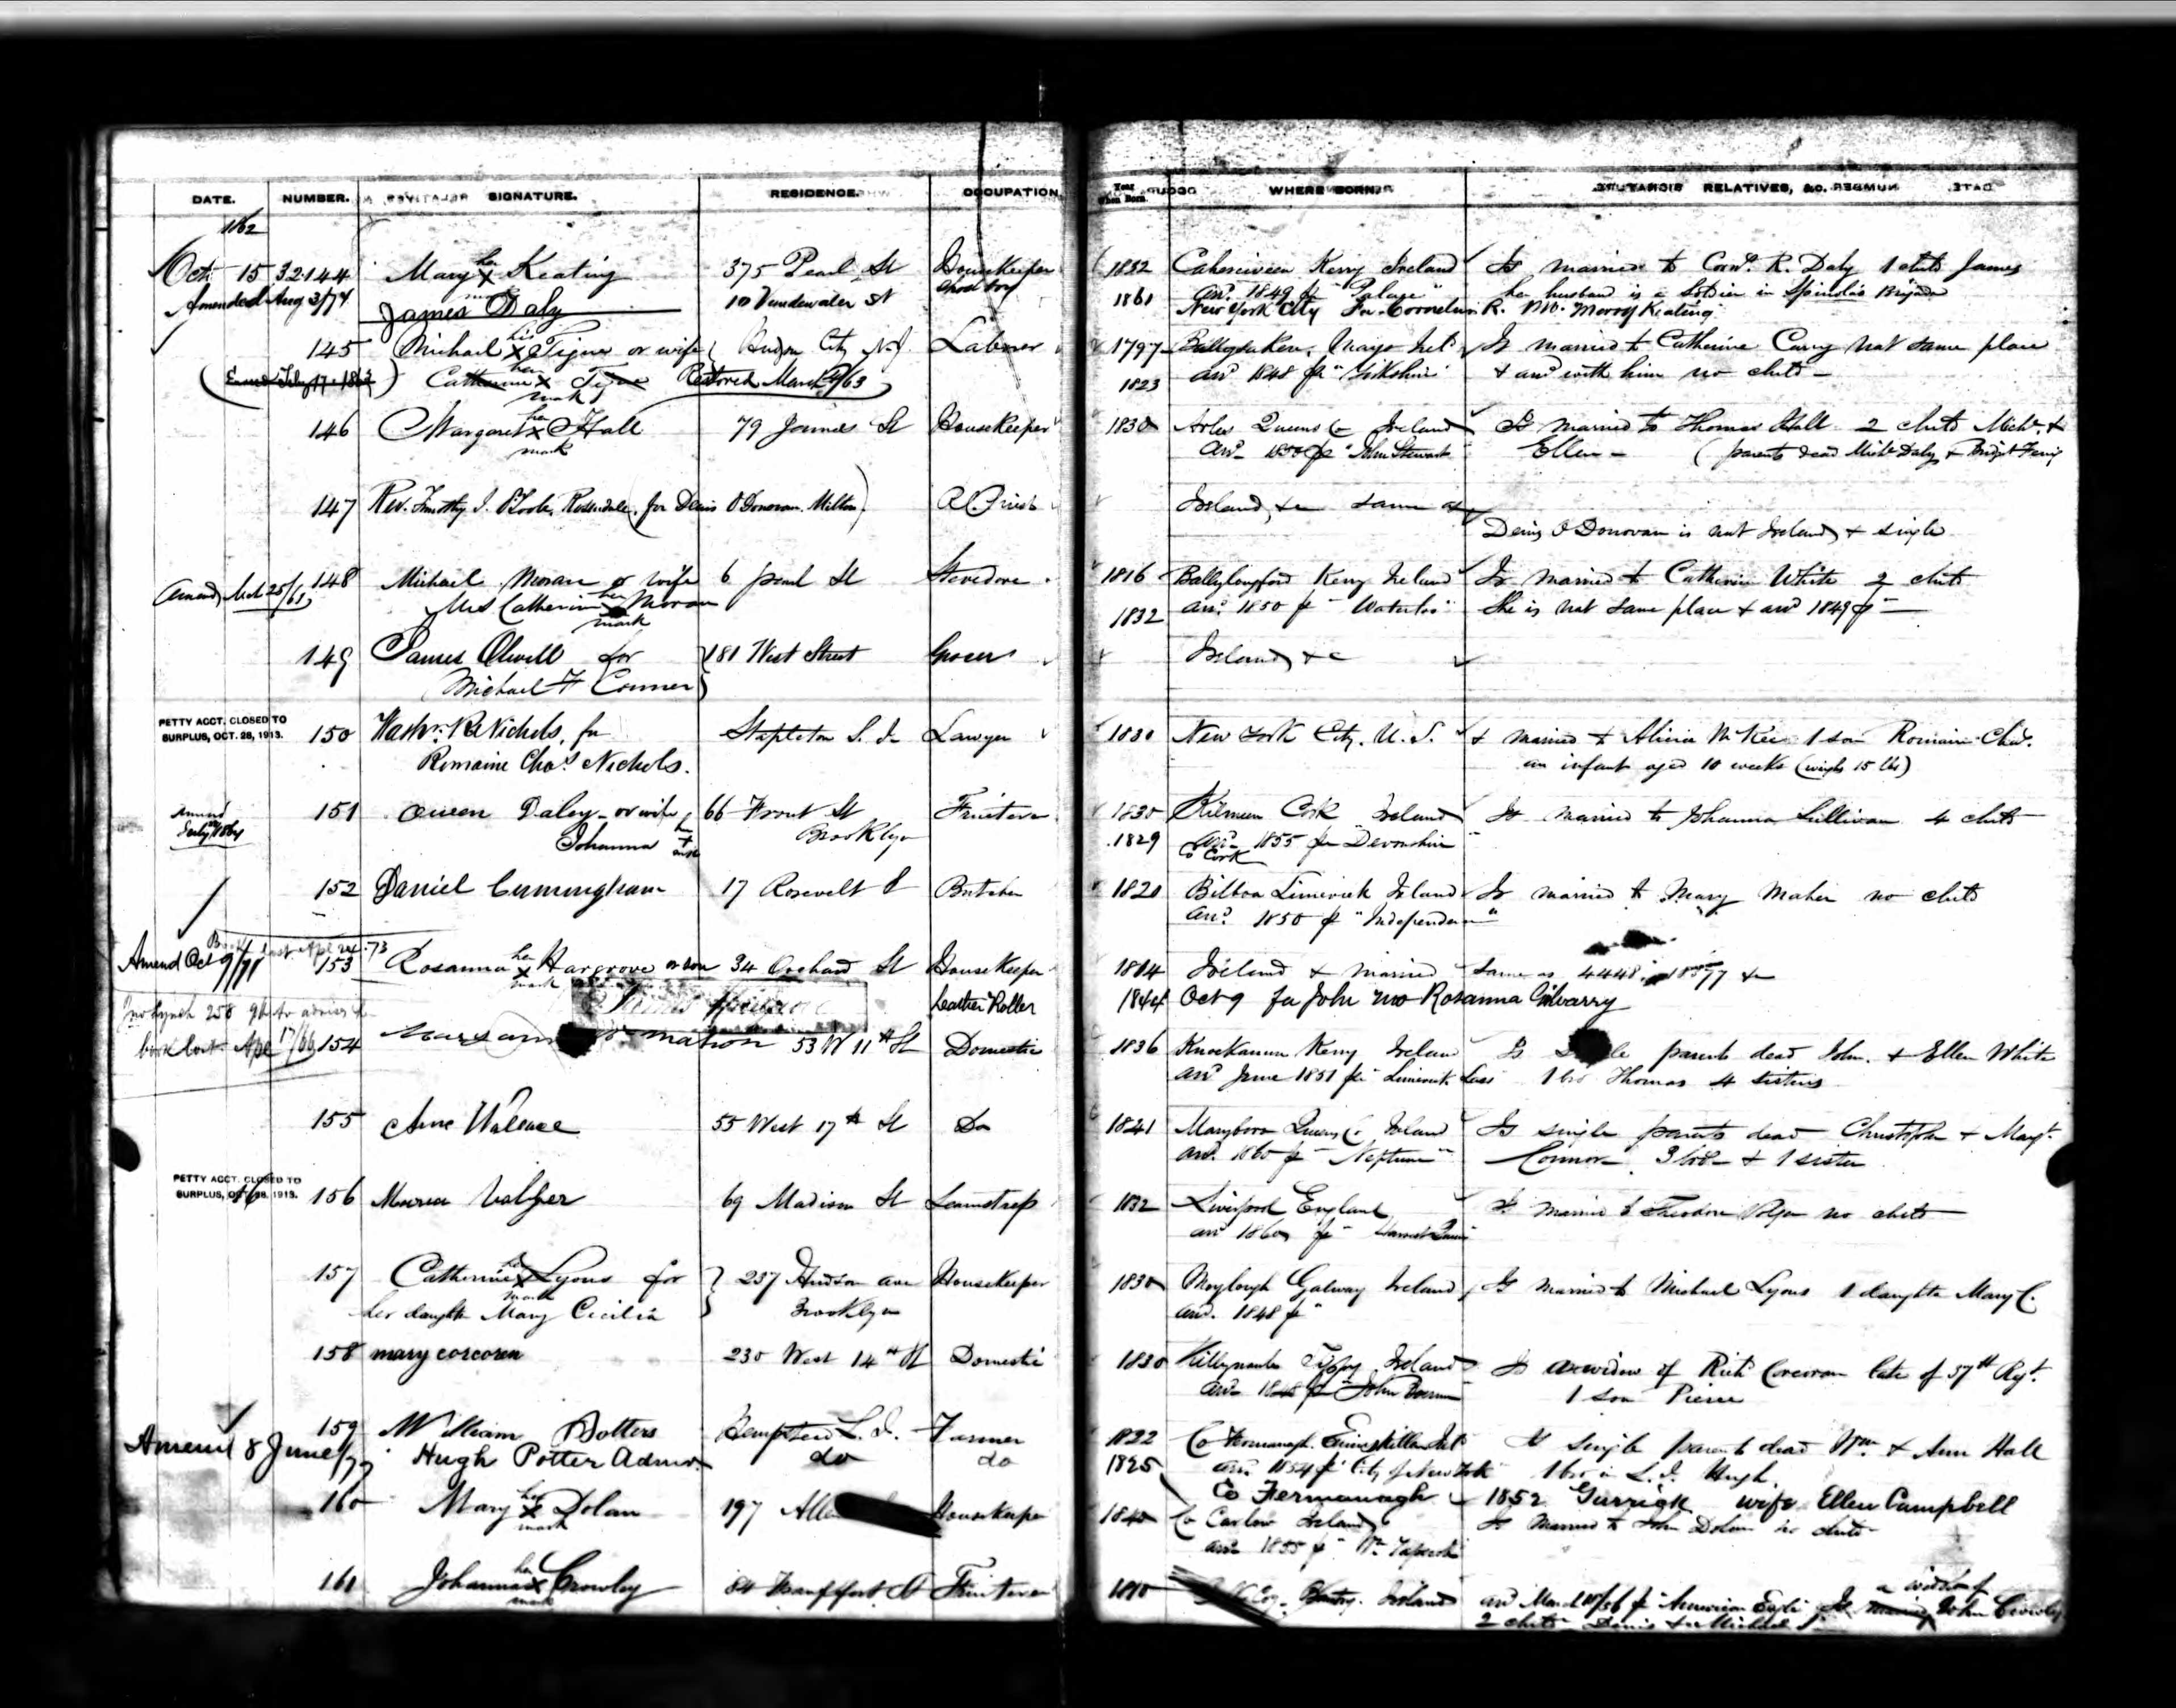 DATE. NUMBER. SIGNATURE. RESIDENCE. OCCUPATION. Year When Born. WHERE BORN. RELATIVES, &C.
1862
Oct. 15 32144 Mary her X mark Keating 375 Pearl St Housekeeper 1832 Caherciveen Kerry Ireland Is married to Corns. R. Daly 1 child James
Amended Aug 3/74 James Daly 10 Vandewater St 1861 arrd. 1849 pr "Palace" her husband is a Soldier in Spinolas Brigade
New York City Fa. Cornelius R. Mo. Mary Keating
145 Michael his X Tigue or wife Hudson City N.J. Laborer 1797 Mayo Ireld Is married to Catherine Curry nat same place
Catherine her X mark Tigue Restored March 9/63 1823 arrd 1848 pr & arrd with him no child
146 Margaret her X mark Hall 79 James St Housekeeper 1830 Arles Queens Co Ireland Is married to Thomas Hall 2 childs Michl. &
arrd 1850 pr "John Stewart" Ellen (parents dead Michl Daly & Bridget
147 Rev. Timothy J. O'Toole, Rosendale, (for Denis O'Donovan. Milton) R.C. Priest Ireland, &c same as
Denis O'Donovan is nat Ireland & single
148 Michael Moran or wife 6 pearl St Stevedore 1816 Ballylongford Kerry Ireland Is married to Catherine White 2 childs
Mrs Catherine her X mark Moran 1832 arrd 1850 pr "Waterloo" She is nat same place & arrd 1849 pr
149 James Olwell for 181 West Street Grocer Ireland &c
Michael F Conner
PETTY ACCT. CLOSED TO SURPLUS, OCT. 28, 1913.
150 Washn. R. Nichols, for Stapleton S. I. Lawyer 1830 New York City. U.S. & married to Alicia McKee 1 son Romaine Chas.
Romaine Chas. Nichols. an infant aged 10 weeks (weighs 15 lbs)
151 Owen Daley or wife 66 Front St Fruiterer 1830 Cork Ireland Is married to Johanna Sullivan 4 childs
Johanna her + mark Brooklyn 1829 arrd 1855 pr "Devonshire"
Co Cork
152 Daniel Cunningham 17 Rosevelt St Butcher 1820 Bilboa Limerick Ireland Is married to Mary Maher no child
arrd. 1850 pr "Independence"
Book lost Apl 24.73
Amend Oct 9/71 153 Rosanna her X mark Hargrove or son 34 Orchard St Housekeeper 1814 Ireland & married same as 4448
Leather Roller 1844 Oct 9 fa John mo Rosanna Gilvarry
book lost Apl 17/66 154 53 W 11th St Domestic 1836 Knockanure Kerry Ireland Is single parents dead John. & Ellen White
arrd June 1851 pr "Limerick Lass" 1 bro Thomas 4 sisters
155 Ann Wallace 55 West 17th St Do 1841 Maryboro Queens Co Ireland Is single parents dead Christopher & Margt.
arrd. 1860 pr "Neptune" Connor. 3 bro & 1 sister
PETTY ACCT. CLOSED TO SURPLUS, OCT. 28, 1913.
16 156 Maria Volger 69 Madison St Seamstress 1832 Liverpool England Is married to Theodore Volger no child
arrd 1860 pr "Harvest Queen"
157 Catherine her X mark Lyons for 257 Hudson ave Housekeeper 1830 Moylough Galway Ireland Is married to Michael Lyons 1 daughter Mary C.
her daughtr Mary Cecilia Brooklyn arrd. 1848 pr
158 mary corcoran 230 West 14th St Domestic 1830 Tippy Ireland Is a widow of Richd Corcoran late of 37th Regt.
1 son Pierce
159 William Potters Hempstead L.I. Farmer 1822 Co Fermanagh. Enniskillen Ireld Is single parents dead Wm. & Ann Hall
Amend 8 June/77 Hugh Potter Admr. do do 1825 arrd. 1854 pr City of New York 1 bro in L.I. Hugh
Co Fermanagh 1852 Garrick wife Ellen Campbell
160 Mary her X mark Dolan 197 Housekeeper 1840 Co Carlow Ireland Is married to John Dolan no child
arrd 1855 pr "Wm Tapscott"
161 Johanna her X mark Crowley 84 Frankfort St Fruiterer 1810 Bantry. Ireland arrd March pr "American Eagle" Is a widow of John Crowley
2 childs Denis & Michael